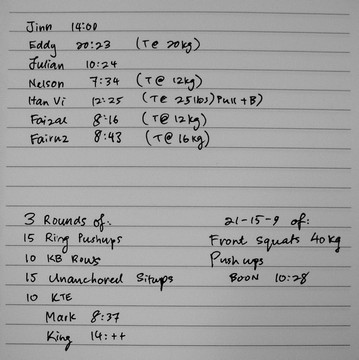 Jinn 14:00
Eddy 20:23 (T@ 20kg)
Julian 10:24
Nelson 7:34 (T@ 12kg)
Han Vi 12:25 (T@ 25lbs) Pull + B)
Faizal 8:16 (T@ 12kg)
Fairuz 8:43 (T@ 16kg)
3 Rounds of:
15 Ring Pushups
10 KB Rows
15 Unanchored Situps
10 KTE
Mark 8:37
King 14:++
21-15-9 of:
Front Squats 40kg
Push ups
BOON 10:28